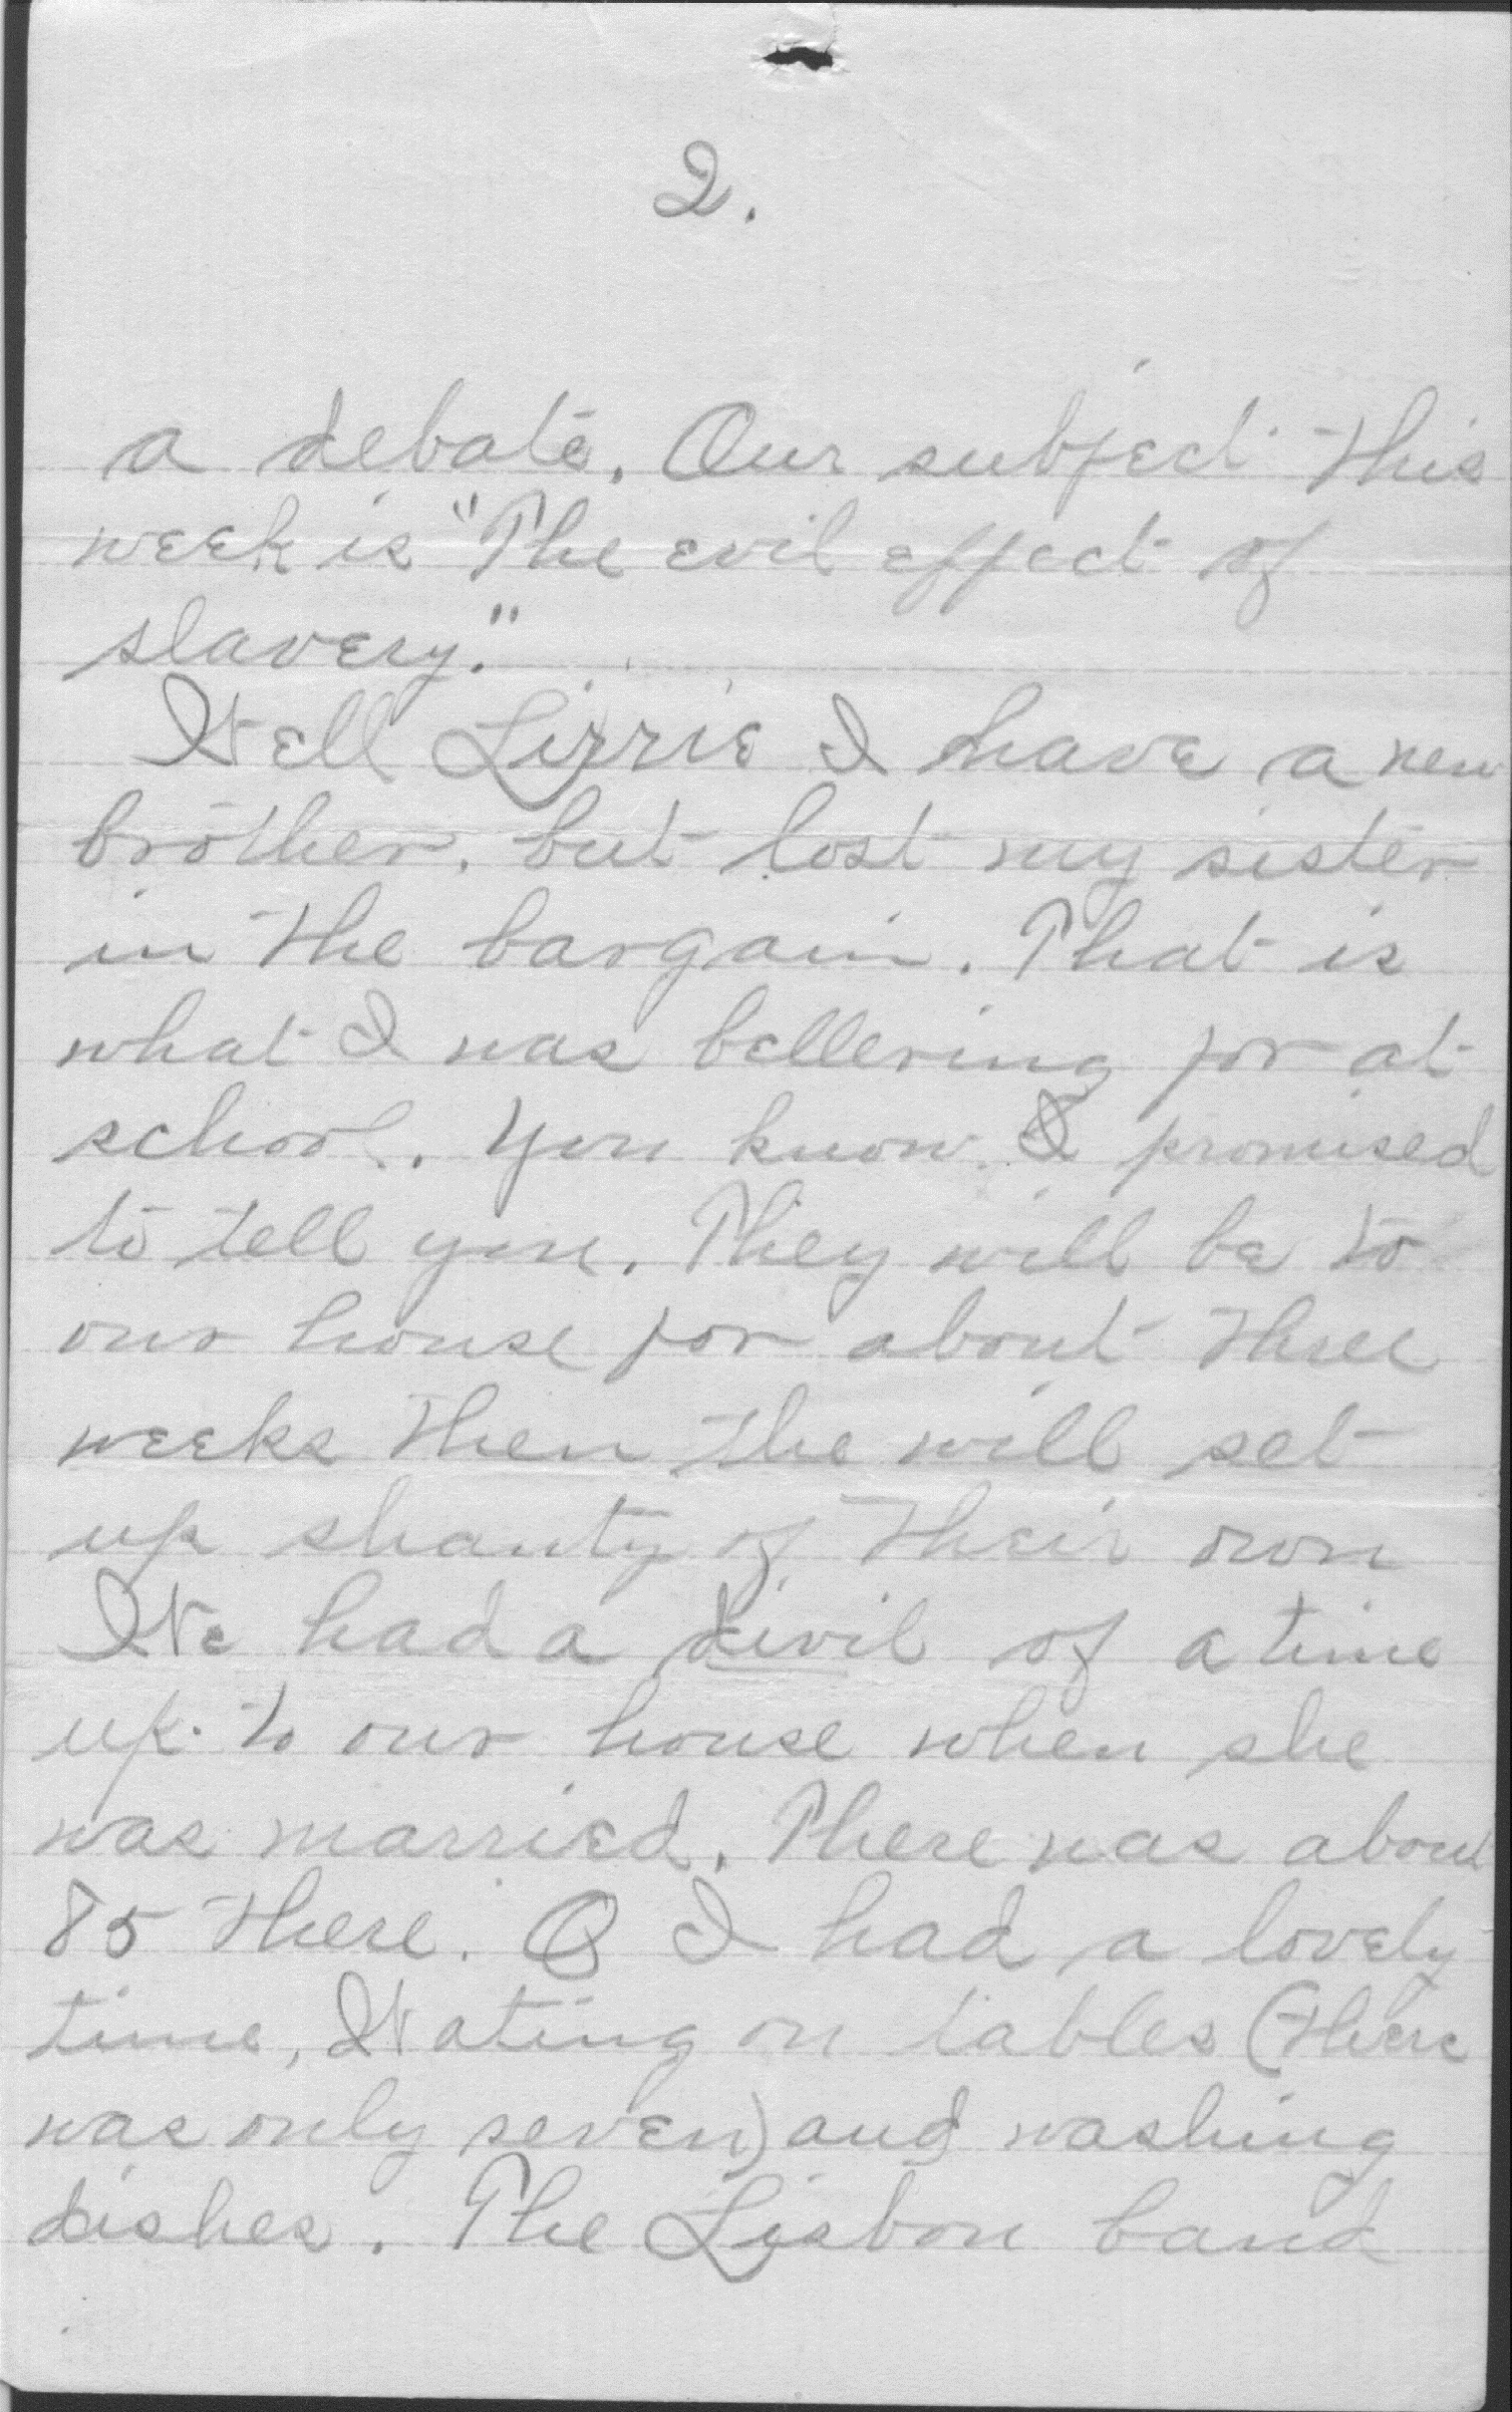 2.
a debate. Our subject this
week is "The evil effect of
slavery."
Well Lizzie I have a new
brother. but lost my sister
in the bargain. That is
what I was bellering for at
school. You know I promised
to tell you. They will be to
our house for about three
weeks then the will set
up shanty of their own
We had a divil of a time
up to our house when she
was married. There was about
85 there. O I had a lovely
time, Wating on tables (there
was only seven) and washing
dishes. The Lisbon band